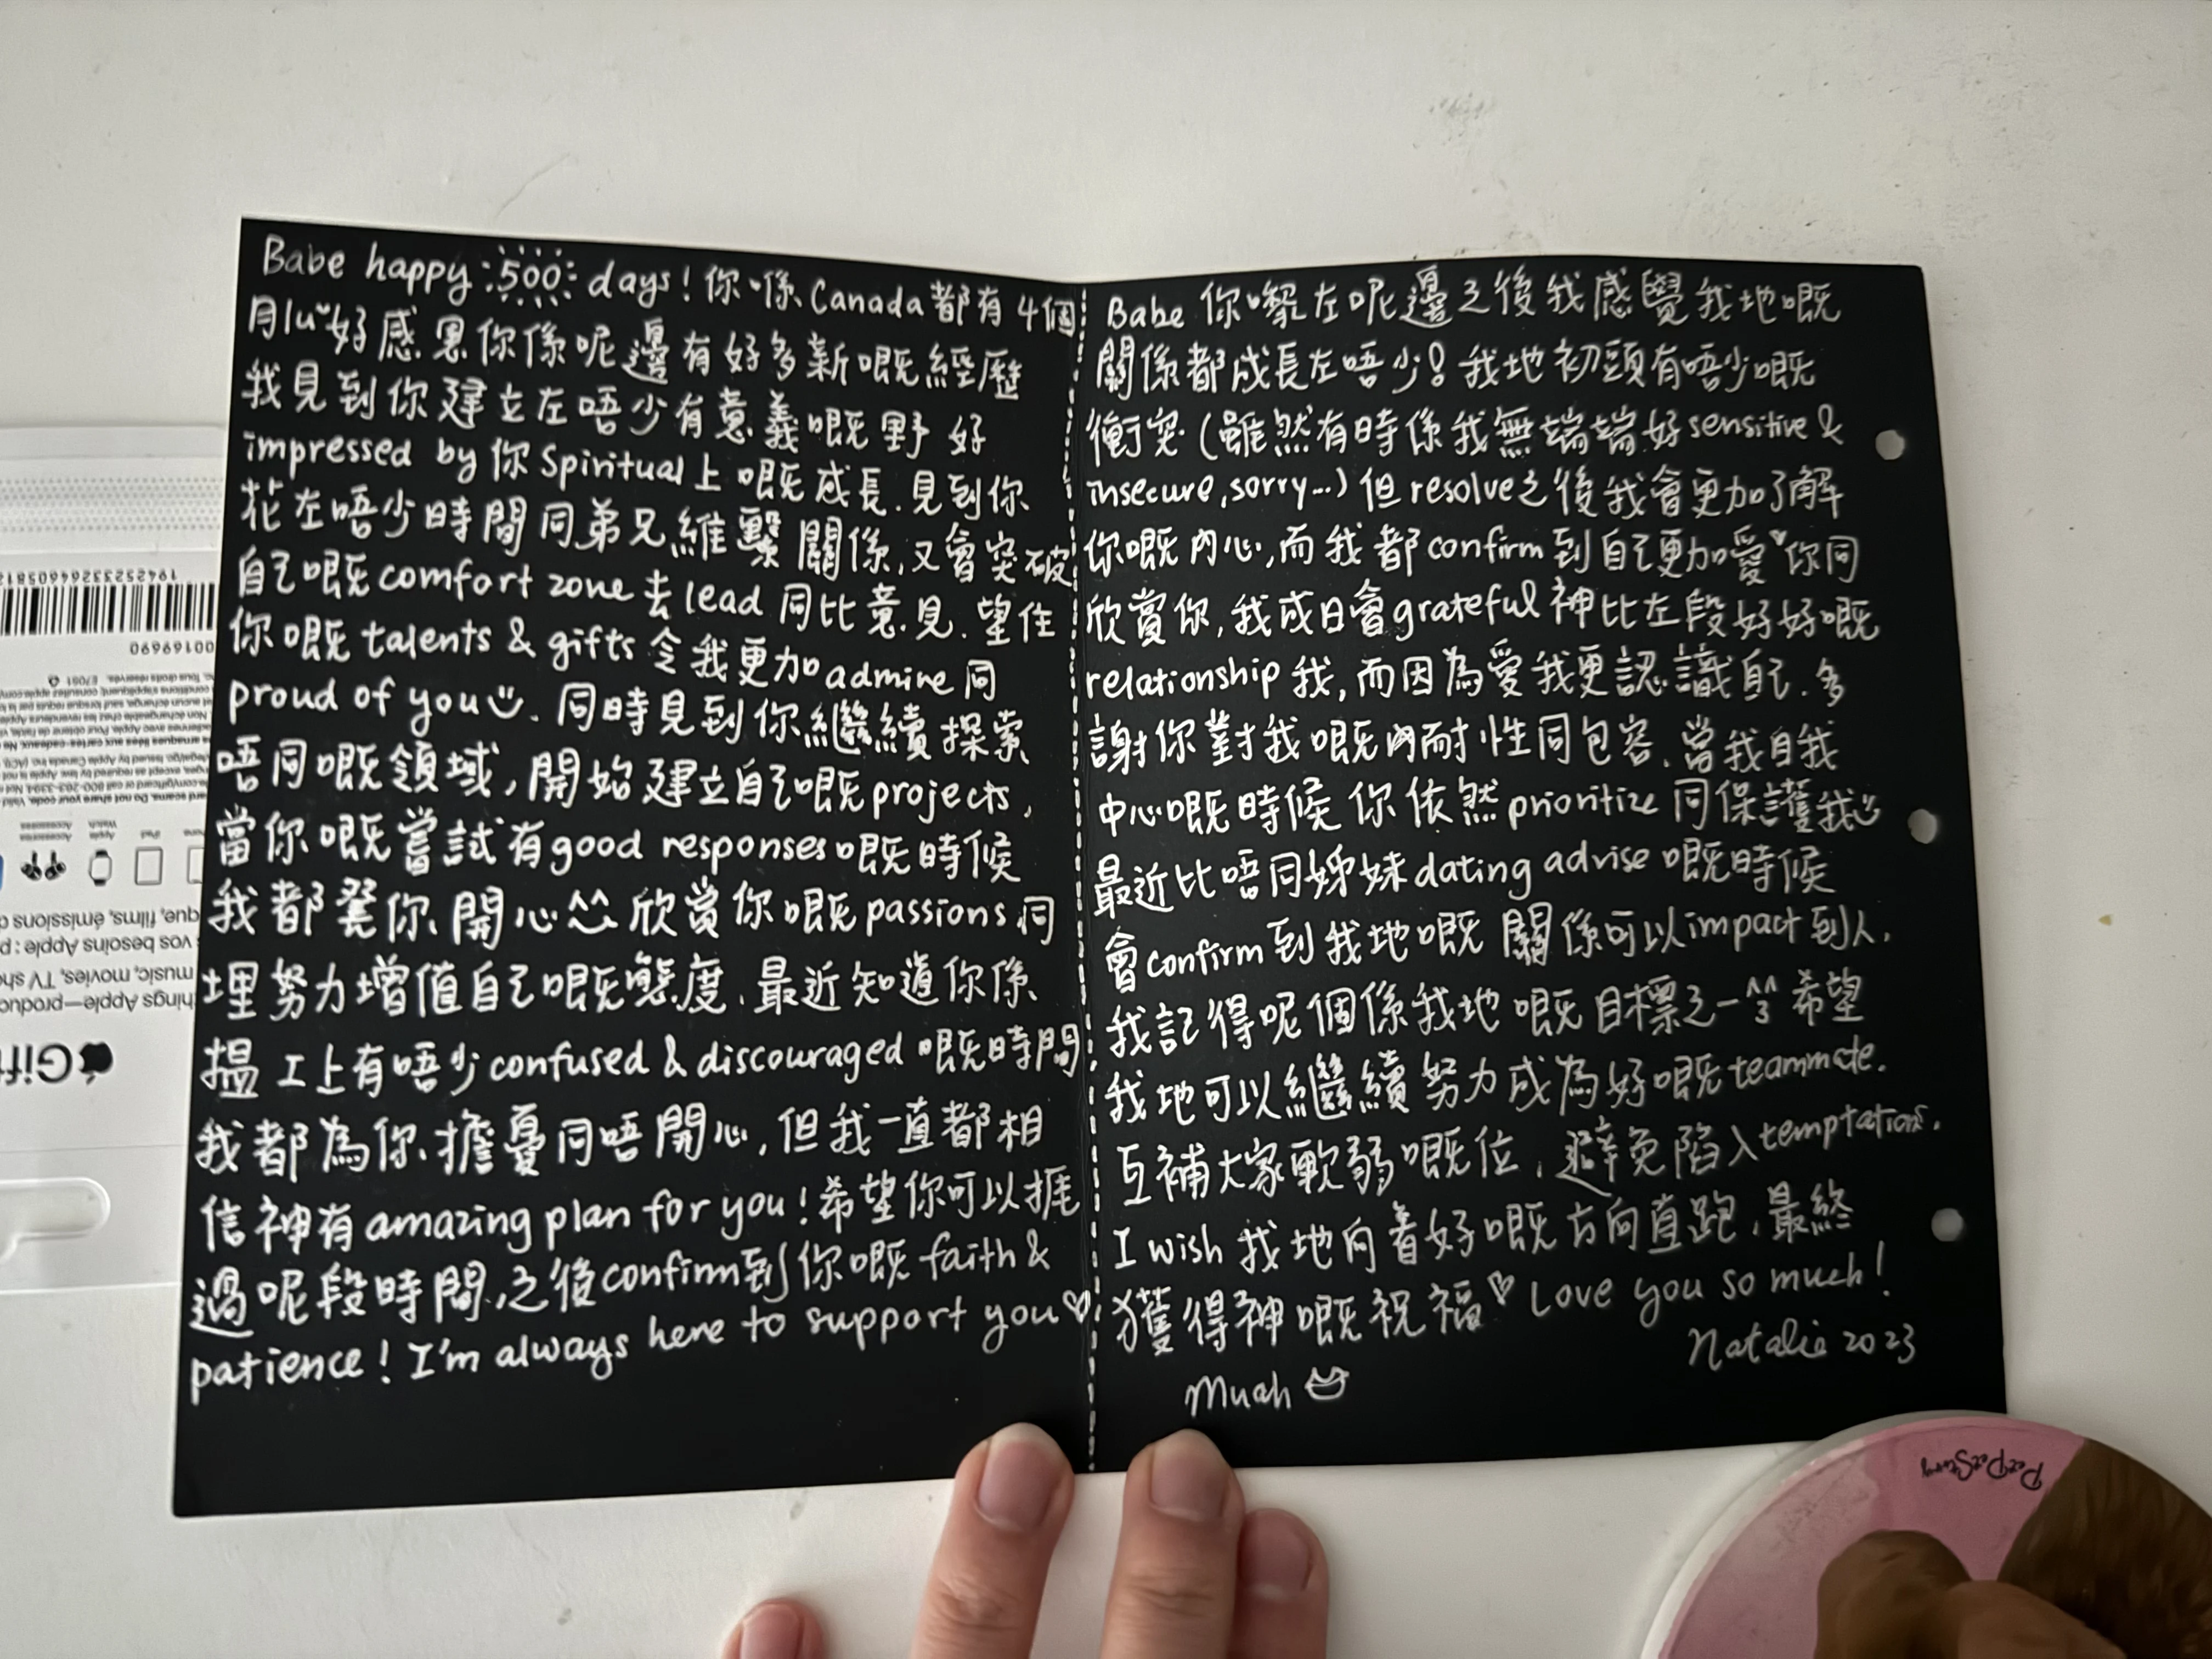 Babe happy 500 days! 你喺Canada都有4個
月lu 好感恩你係呢邊有好多新嘅經歷
我見到你建立左唔少有意義嘅野 好
impressed by 你 Spiritual上嘅成長. 見到你
花左唔少時間同弟兄維繫關係, 又會突破
自己嘅comfort zone去lead同比意見. 望住
你嘅talents & gifts 令我更加admire同
proud of you. 同時見到你繼續探索
唔同嘅領域, 開始建立自己嘅projects,
當你嘅嘗試有good responses嘅時候
我都戥你開心 欣賞你嘅passions同
埋努力增值自己嘅態度. 最近知道你係
搵工上有唔少confused & discouraged嘅時間
我都為你擔憂同唔開心, 但我一直都相
信神有amazing plan for you! 希望你可以捱
過呢段時間, 之後confirm到你嘅faith &
patience! I'm always here to support you♡
Babe 你嚟左呢邊之後我感覺我地嘅
關係都成長左唔少! 我地初頭有唔少嘅
衝突 (雖然有時係我無端端好sensitive &
insecure, sorry...) 但resolve之後我會更加了解
你嘅內心, 而我都confirm到自己更加愛♥你同
欣賞你, 我成日會grateful神比左段好好嘅
relationship我, 而因為愛我更認識自己. 多
謝你對我嘅耐性同包容. 當我自我
中心嘅時候你依然prioritize同保護我
最近比唔同姊妹dating advise嘅時候
會confirm到我地嘅關係可以impact到人.
我記得呢個係我地嘅目標之一 ^3^ 希望
我地可以繼續努力成為好嘅teammate.
互補大家軟弱嘅位, 避免陷入temptations.
I wish 我地向着好嘅方向直跑, 最終
獲得神嘅祝福♡ Love you so much!
Natalie 2023
Muah
1942523326460581
00169690
PeePeeSamy
Gif